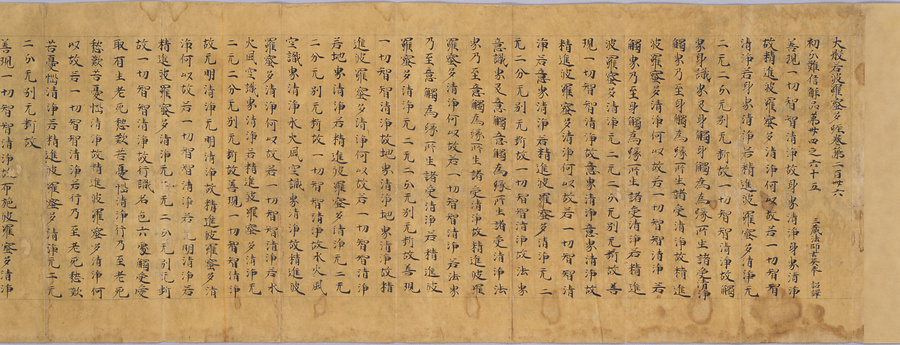 大般若波羅蜜多經卷第二百廿六
初分難信解品第卅四之卌五 三藏法師玄奘奉 詔譯
善現一切智智清淨故身界清淨身界清淨
故精進波羅蜜多清淨何以故若一切智智
清淨若身界清淨若精進波羅蜜多清淨无
二无二分无別无斷故一切智智清淨故觸
界身識界及身觸身觸為緣所生諸受清淨
觸界乃至身觸為緣所生諸受清淨故精進
波羅蜜多清淨何以故若一切智智清淨若
觸界乃至身觸為緣所生諸受清淨若精進
波羅蜜多清淨无二无二分无別无斷故善
現一切智智清淨故意界清淨意界清淨故
精進波羅蜜多清淨何以故若一切智智清
淨若意界清淨若精進波羅蜜多清淨无二
无二分无別无斷故一切智智清淨故法界
意識界及意觸意觸為緣所生諸受清淨法
界乃至意觸為緣所生諸受清淨故精進波
羅蜜多清淨何以故若一切智智清淨若法界
乃至意觸為緣所生諸受清淨若精進波
羅蜜多清淨无二无二分无別无斷故善現
一切智智清淨故地界清淨地界清淨故精
進波羅蜜多清淨何以故若一切智智清淨
若地界清淨若精進波羅蜜多清淨无二无
二分无別无斷故一切智智清淨故水火風
空識界清淨水火風空識界清淨故精進波
羅蜜多清淨何以故若一切智智清淨若水
火風空識界清淨若精進波羅蜜多清淨无
二无二分无別无斷故善現一切智智清淨
故无明清淨无明清淨故精進波羅蜜多清
淨何以故若一切智智清淨若无明清淨若
精進波羅蜜多清淨无二无二分无別无斷
故一切智智清淨故行識名色六處觸受愛
取有生老死愁歎苦憂惱清淨行乃至老死
愁歎苦憂惱清淨故精進波羅蜜多清淨何
以故若一切智智清淨若行乃至老死愁歎
苦憂惱清淨若精進波羅蜜多清淨无二无
二分无別无斷故
善現一切智智清淨故布施波羅蜜多清淨